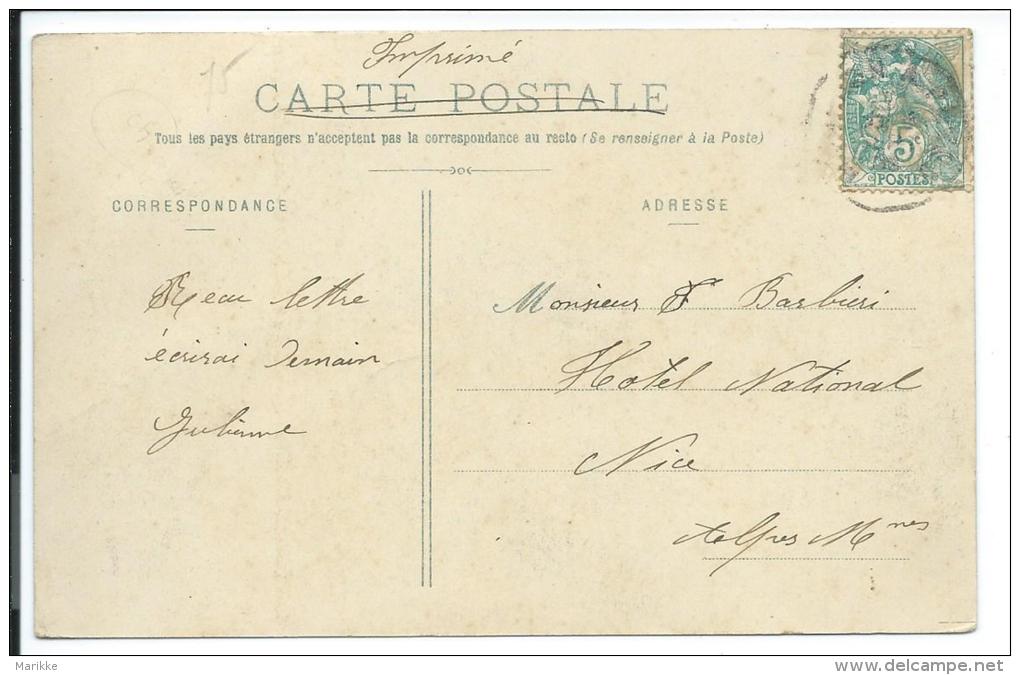 Imprimé
15
CARTE POSTALE
Tous les pays étrangers n'acceptent pas la correspondance au recto (Se renseigner à la Poste)
CORRESPONDANCE
Reçu lettre
écrirai Demain
Julienne
ADRESSE
Monsieur F Barbieri
Hotel National
Nice
Alpes Mmes
5c
POSTES
Marikke
www.delcampe.net